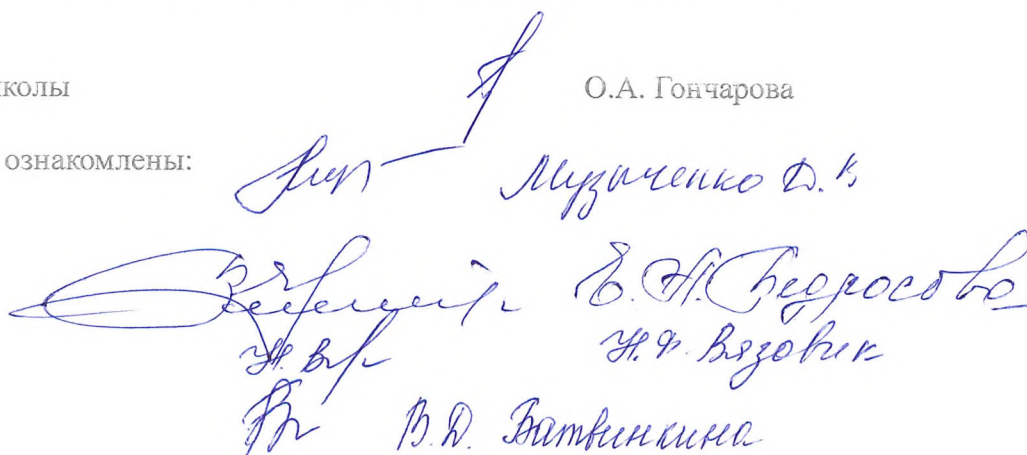 колы О.А. Гончарова
ознакомлены:
Музыченко Д.В
Е.Н. Бедросова
Н.Ф. Вязовик
В.Д. Батвинкина